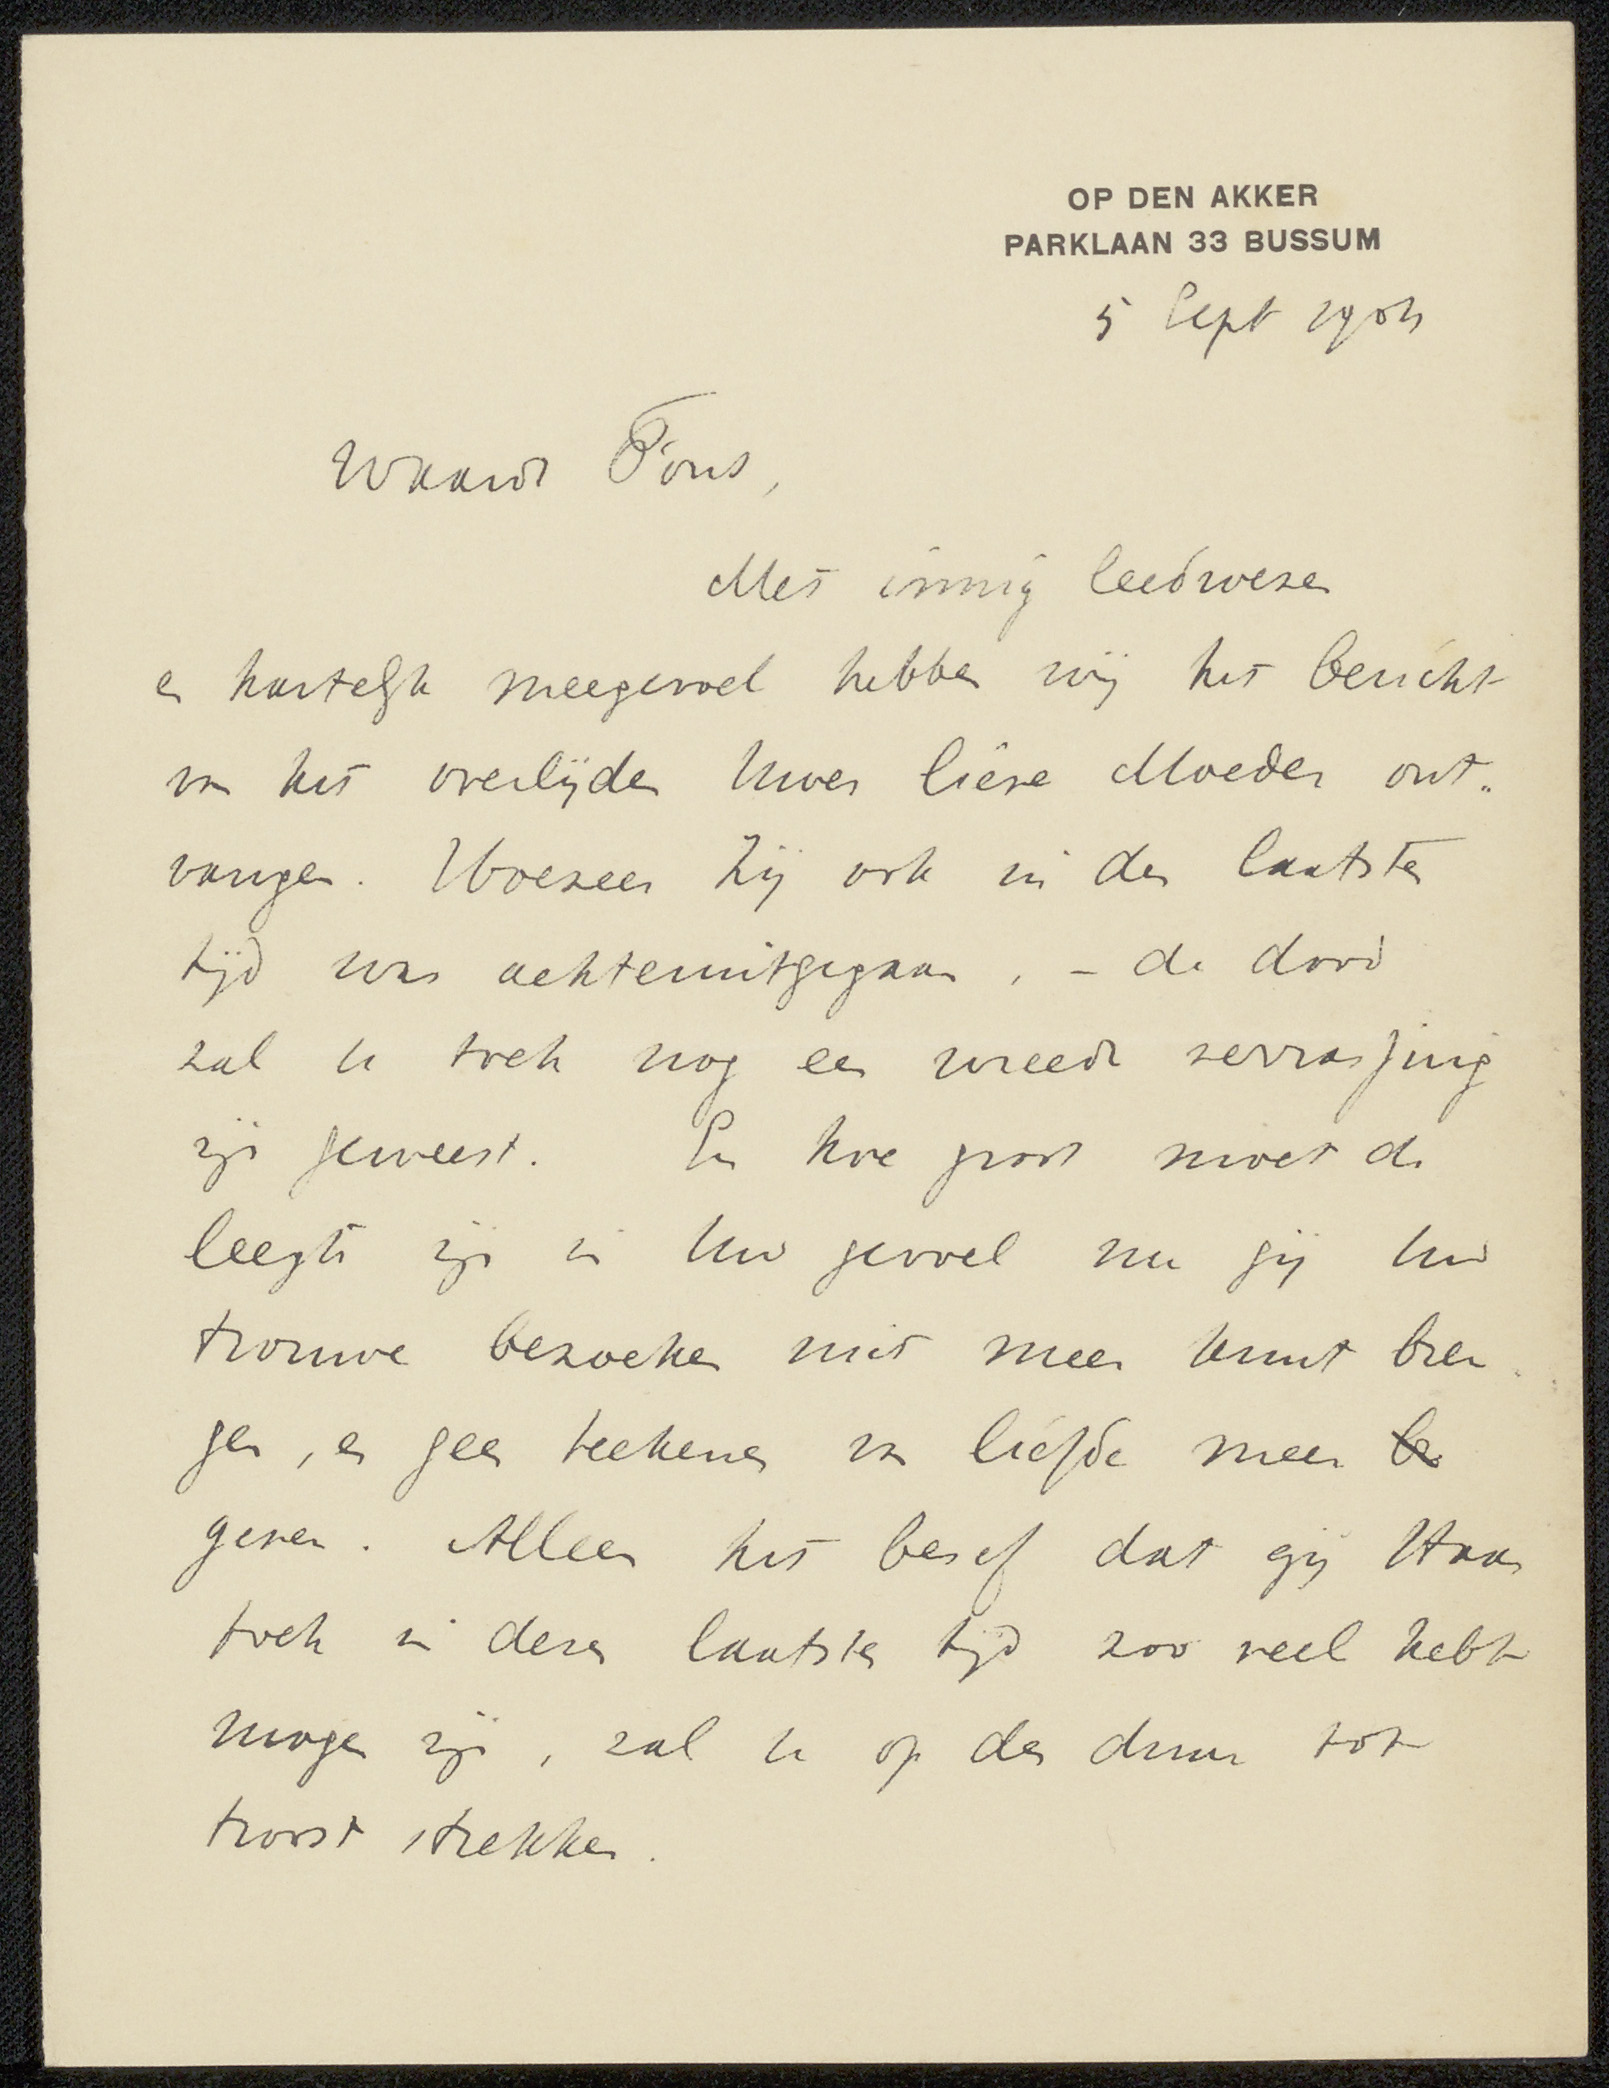 OP DEN AKKER
PARKLAAN 33 BUSSUM
5 Sept
Waarde Fons,
Met innig leedwezen
en hartelijk meegevoel hebben wij het bericht
van het overlijden Uwer lieve Moeder ont„
vangen. Hoezeer Zij ook in den laatsten
tijd was achteruitgegaan, – de dood
zal U toch nog een wreede verrassing
zijn geweest. En hoe groot moet de
leegte zijn in Uw gevoel nu gij Uw
trouwe bezoeken niet meer kunt bren
gen, en geen teekenen van liefde meer
geven. Alleen het besef dat gij Haar
toch in dezen laatsten tijd zoo veel hebt
mogen zijn, zal U op den duur tot
troost strekken.